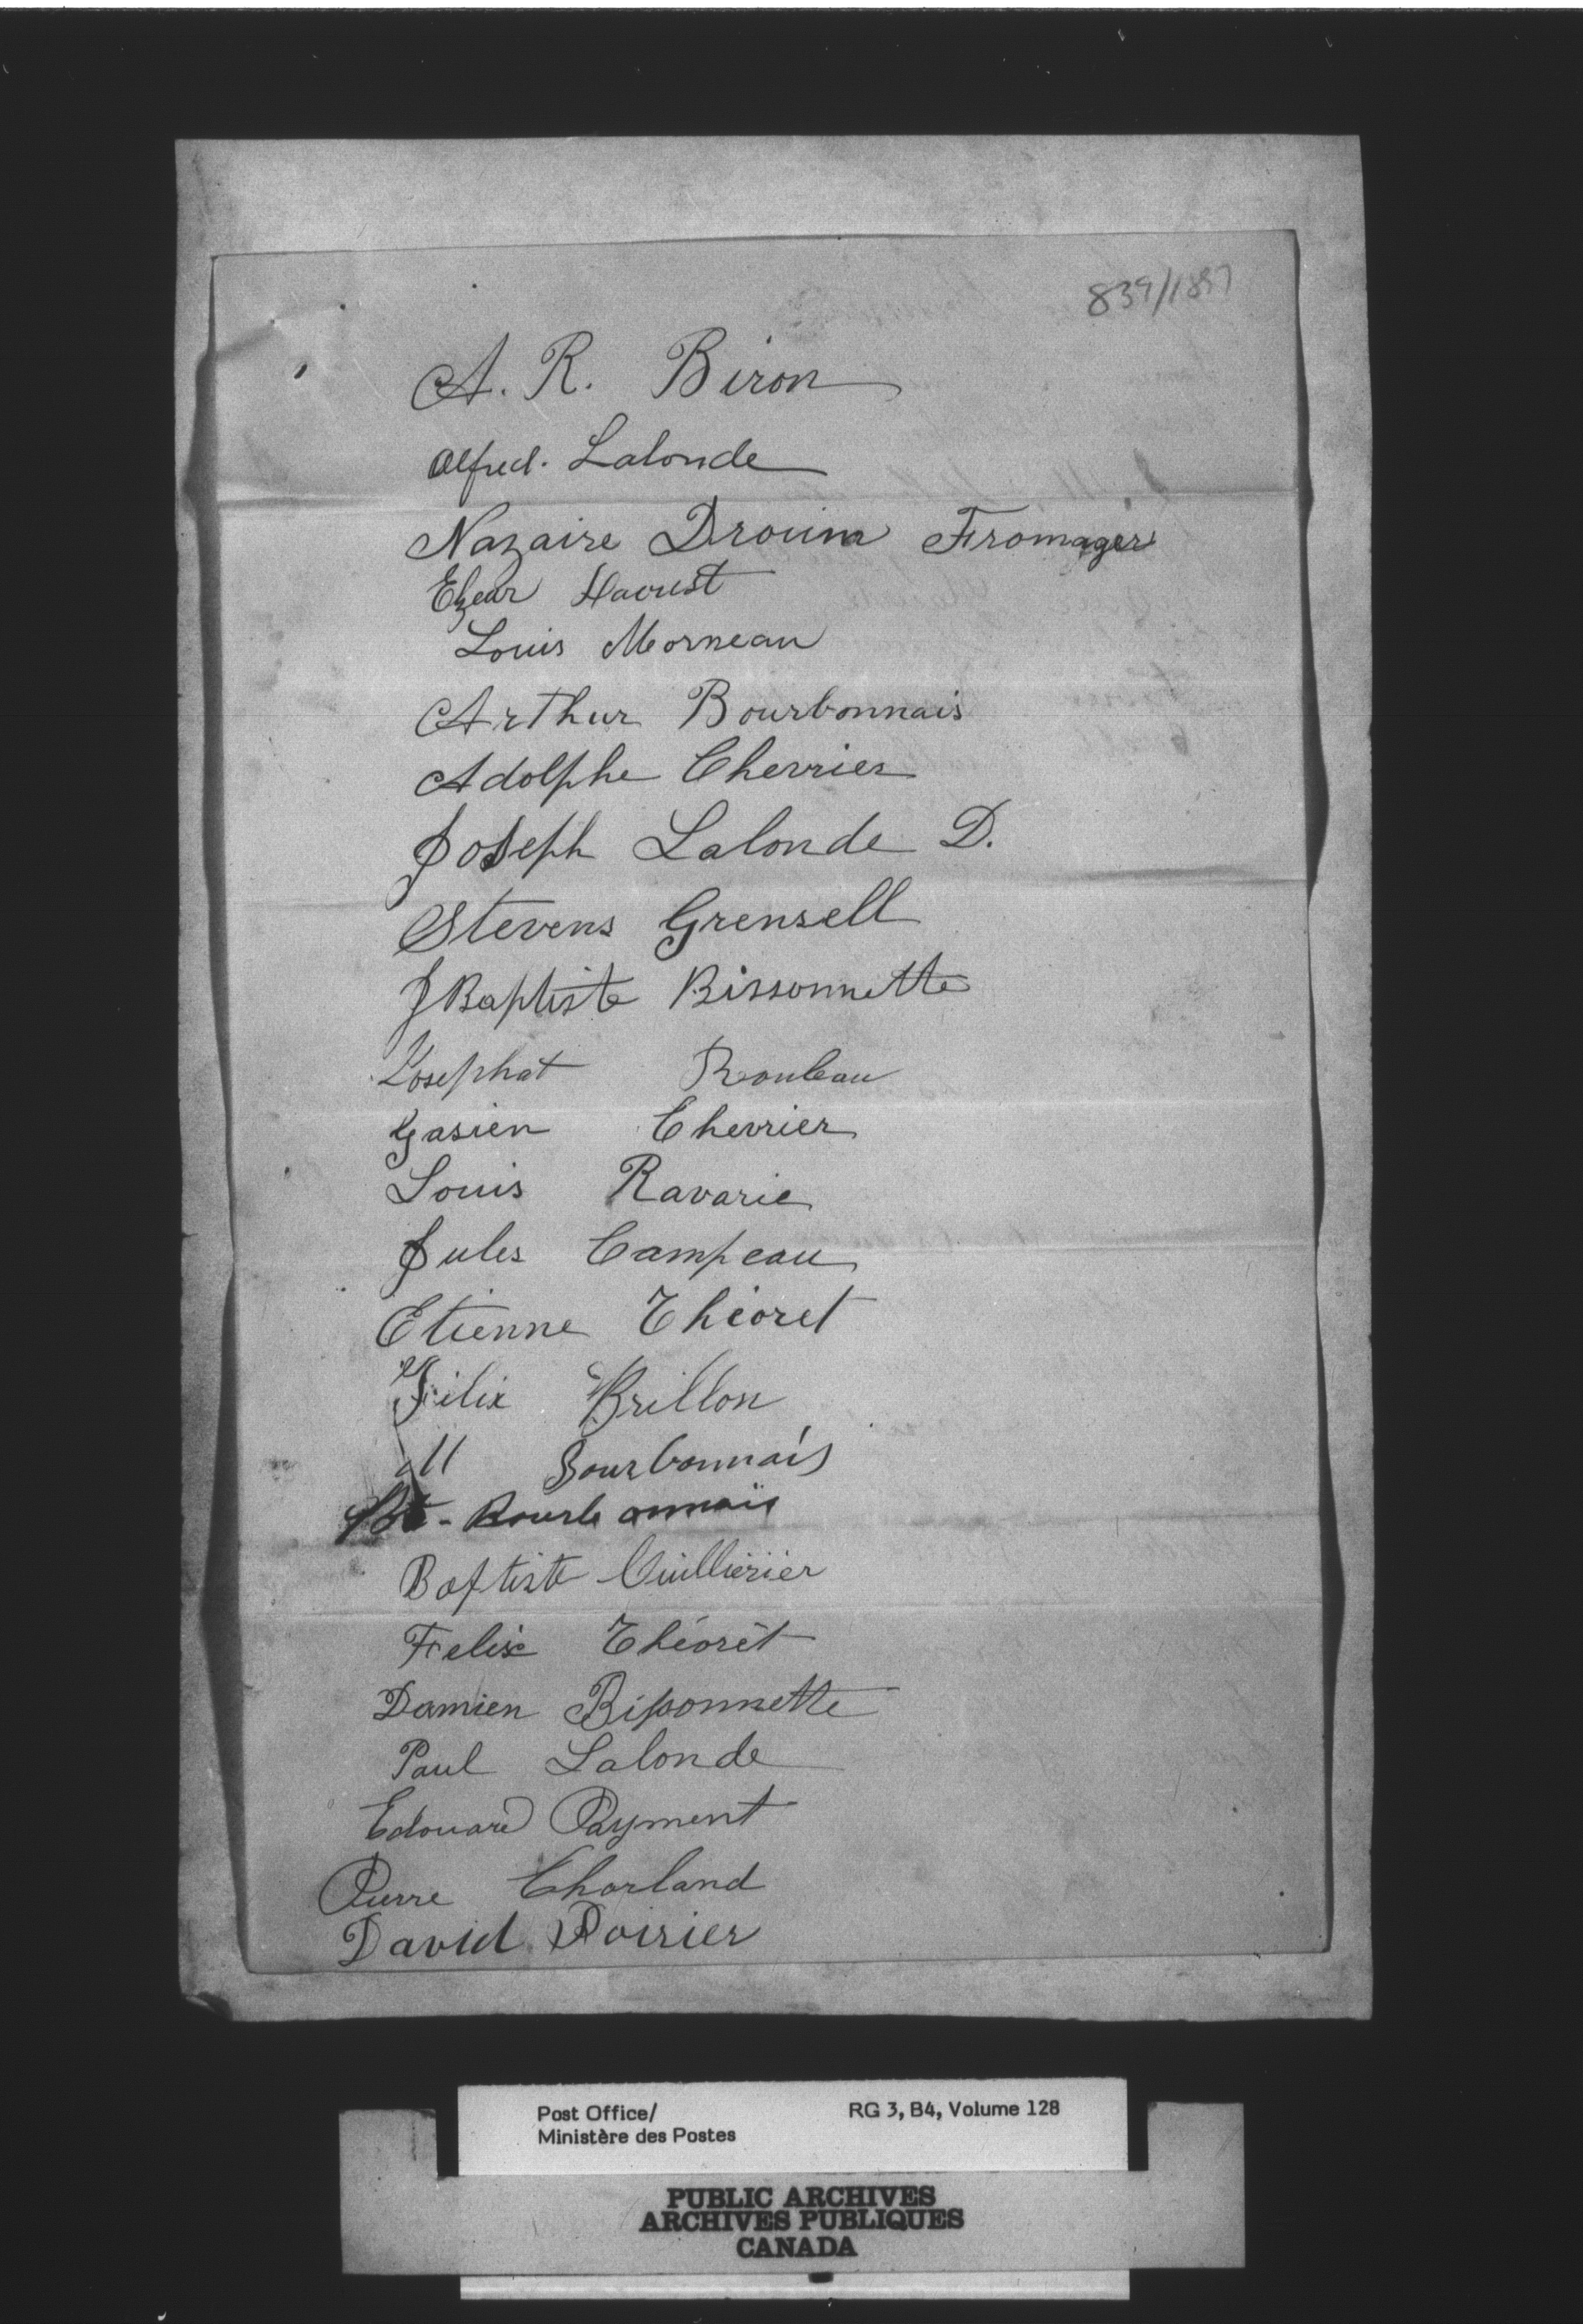 839/1897
A. R. Biron
Alfred. Lalonde
Nazaire Drouin Fromager
Elzear Daoust
Louis Morneau
Arthur Bourbonnais
Adolphe Chevrier
Joseph Lalonde D.
Stevens Grensell
J Baptiste Bissonnette
Josephat Rouleau
Gasien Chevrier
Louis Ravarie
Jules Campeau
Etienne Théoret
Félix Brillon
M Bourbonnais
Bte - Bourbonnais
Baptiste Cuillierier
Felix Théorét
Damien Bissonnette
Paul Lalonde
Edouard Payment
Pierre Charland
David Poirier
Post Office/ RG 3, B4, Volume 128
Ministère des Postes
PUBLIC ARCHIVES
ARCHIVES PUBLIQUES
CANADA